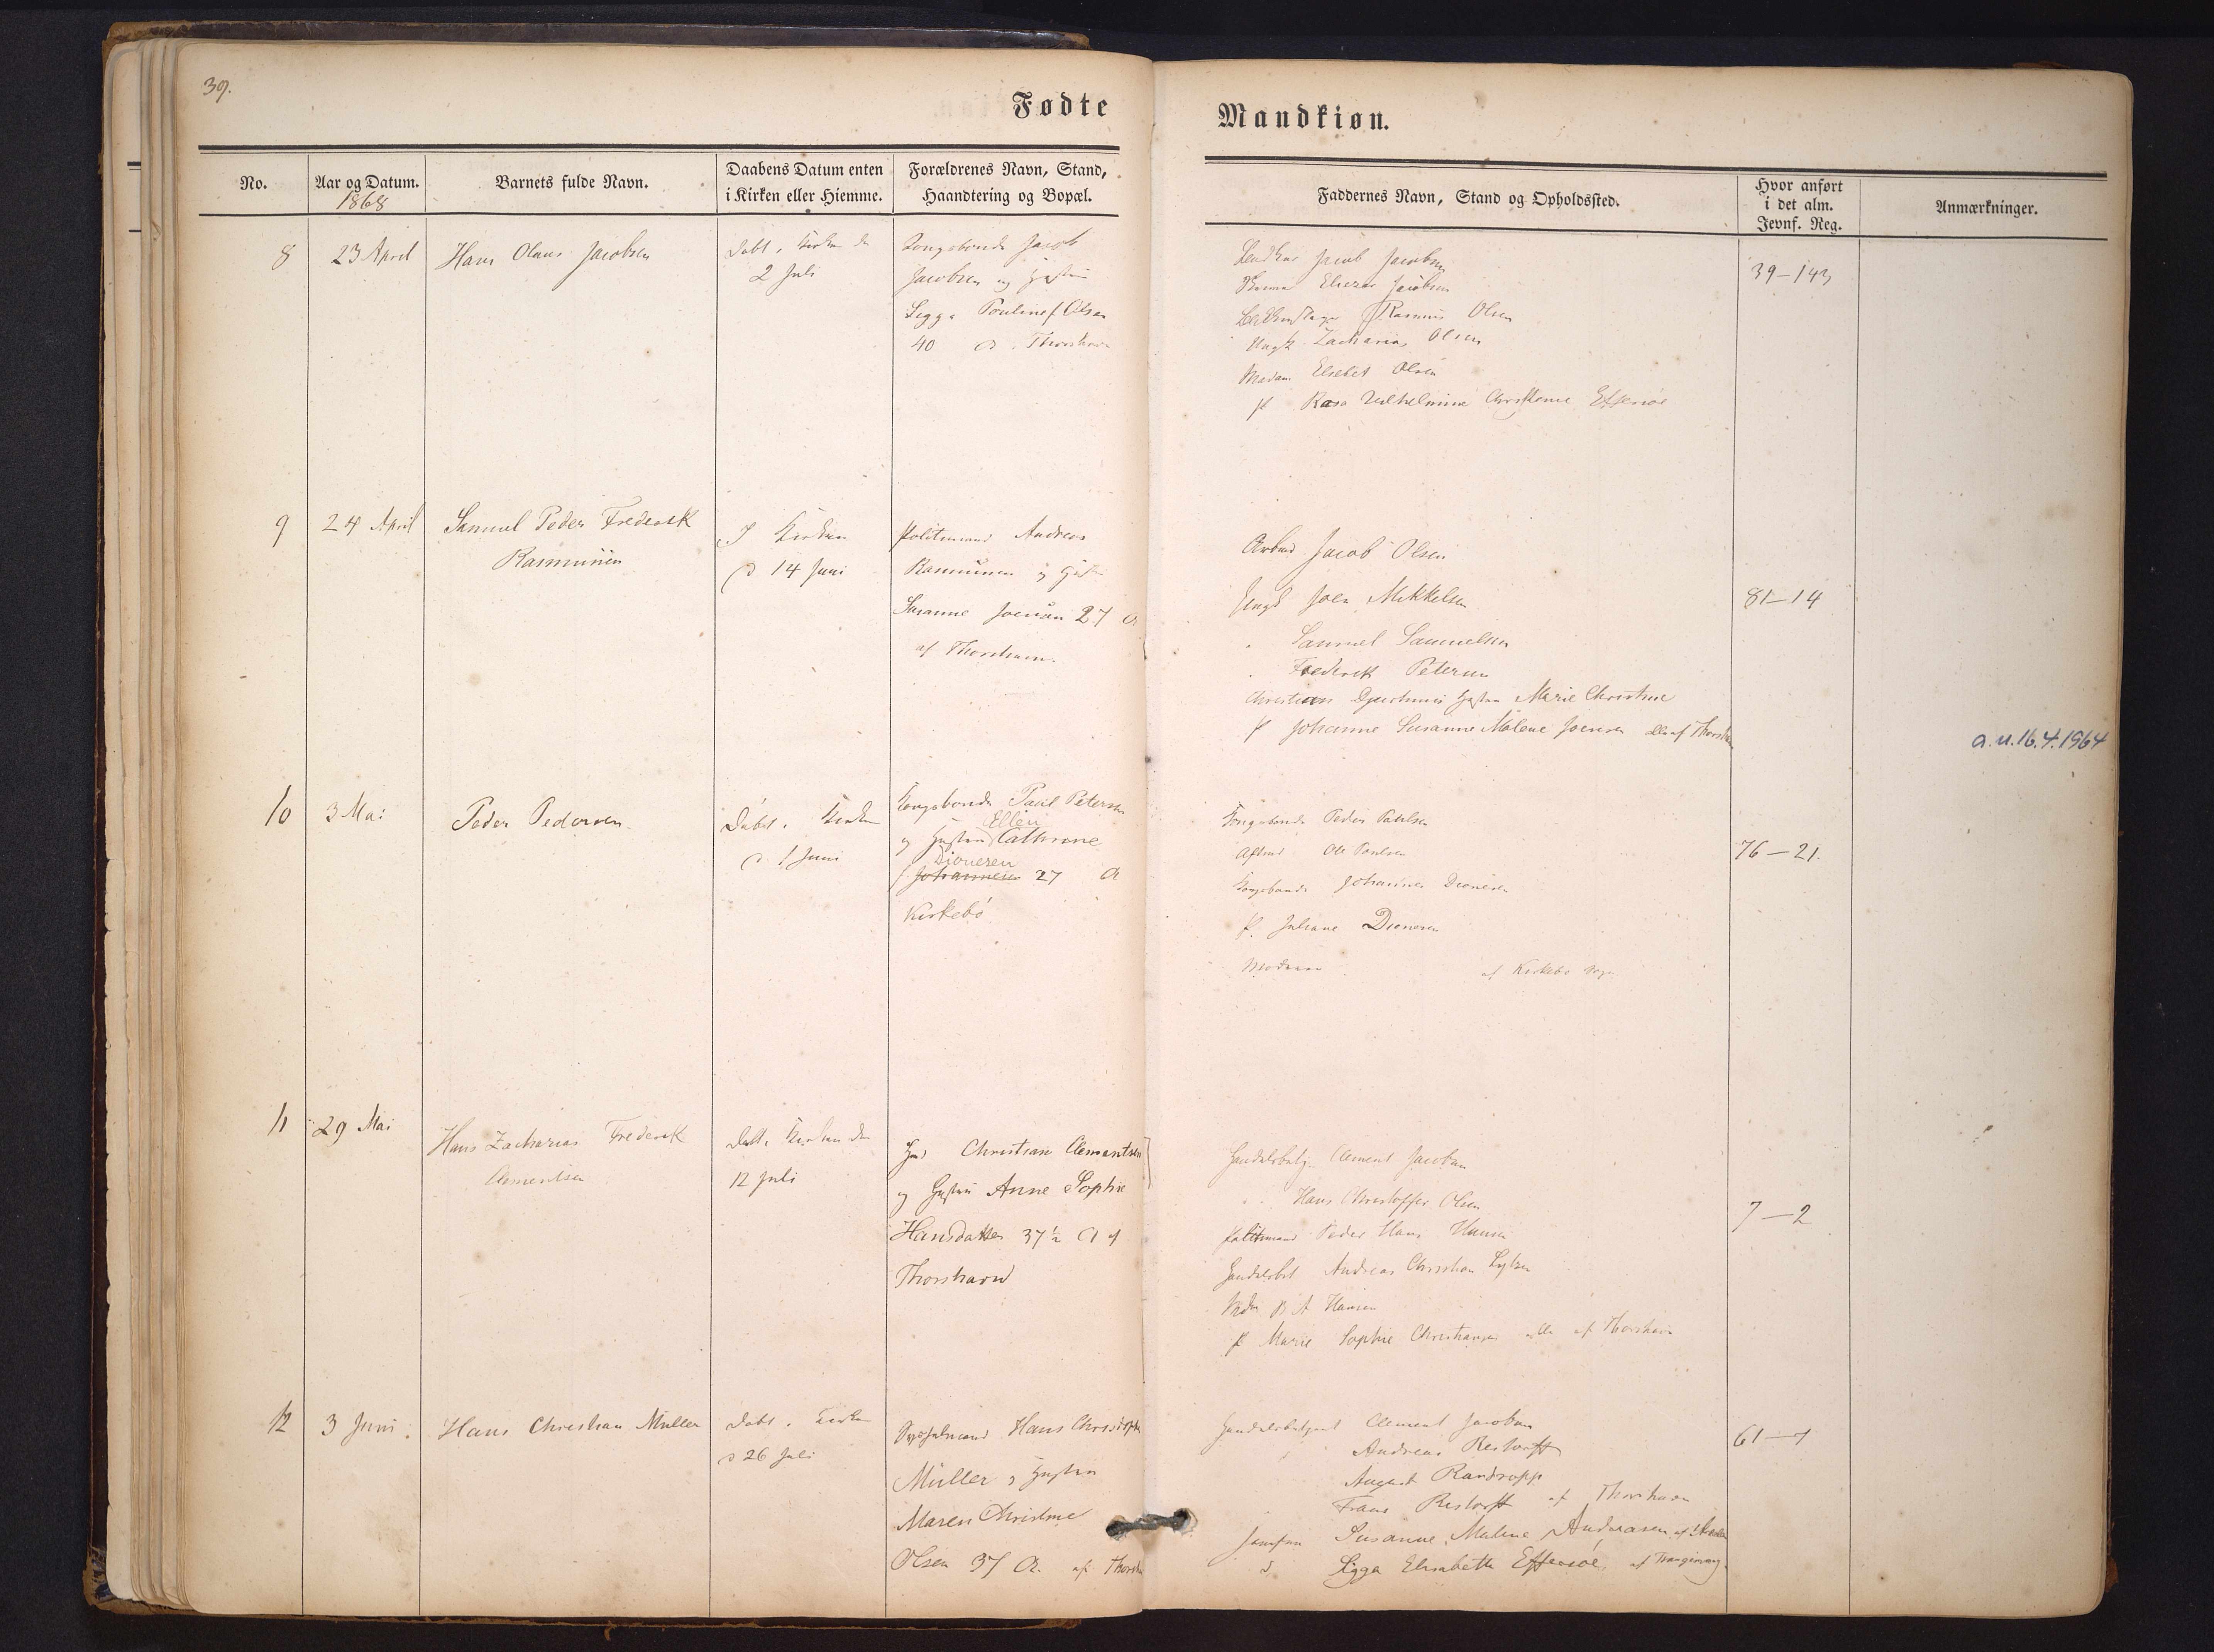 39.
Fødte
Mandkiøn.
No.
Aar og Datum.
1868
Barnets fulde Navn.
Daabens Datum enten
i Kirken eller Hiemme.
Forældrenes Navn, Stand,
Haandtering og Bopæl.
Faddernes Navn, Stand og Opholdssted.
Hvor anført
i det alm.
Jevnf. Reg.
Anmærkninger.
8
23 April
Hans Olaus Jacobsen
Døbt i Kirken den
2 Juli
Kongsbonde Jacob
Jacobsen og Hustru
Sigga Pouline f Olsen
40 A. Thorshavn
Jacob Jacobsen
Eliezer Jacobsen
Rasmus Olsen
Ungk Zacharias Olsen
Madam Elsebet Olsen
P Rasa Vilhelmine Christence Effersøe
39-143
9
24 April
Samuel Peder Frederik
Rasmussen
I Kirken
d 14 Juni
Politimand Andreas
Rasmussen og Hustru
Susanne Joensen 27 A
af Thorshavn.
Arbmd Jacob Olsen
Ungk Joen Mikkelsen
" Samuel Samuelsen
" Frederik Petersen
Christian Hustru Marie Christine
P Johanne Susanne Malene Joensen alle af Thorshavn
81-14
a.u.16.4.1964
10
3 Mai
Peder Pedersen
Døbt i Kirken
d. 1 Juni
Kongsbonde Paul Petersen
Ellen
og Hustru Cathrine
Dionesen
f Johannesen 27 A
Kirkebø
Kongsbonde Peder Paulsen
Ole Poulsen
Kongsbonde Johannes Dionesen
P. Juliane Dionesen
Moderen af Kirkebø Sogn
76-21.
11
29 Mai
Hans Zacharias Frederik
Clementsen
Døbt i Kirken den
12 Juli
Christian Clementsen
og Hustru Anne Sophie
Hansdatter 37½ A af
Thorshavn
Handelsbetj. Clement Jacobsen
" Hans Christoffer Olsen
Politimand Peder Hans Hansen
Handelsbet Andreas Christian Lützen
B A Hansen
P Marie Sophie Christiansen alle af Thorshavn
7-2
12
3 Juni.
Hans Christian Müller
Døbt i Kirken
d 26 Juli
Sysselmand Hans Christoph
Müller og Hustru
Maren Christine
Olsen 37 A. af Thorshavn
Handelsbetjent Clement Jacobsen
Andreas Restorff
August Randropp
Frans Restorff af Thorshavn
Jomfru Susanne Malene Andreasen af
d Sigga Elisabeth Effersøe, af Trangisvaag.
61-7